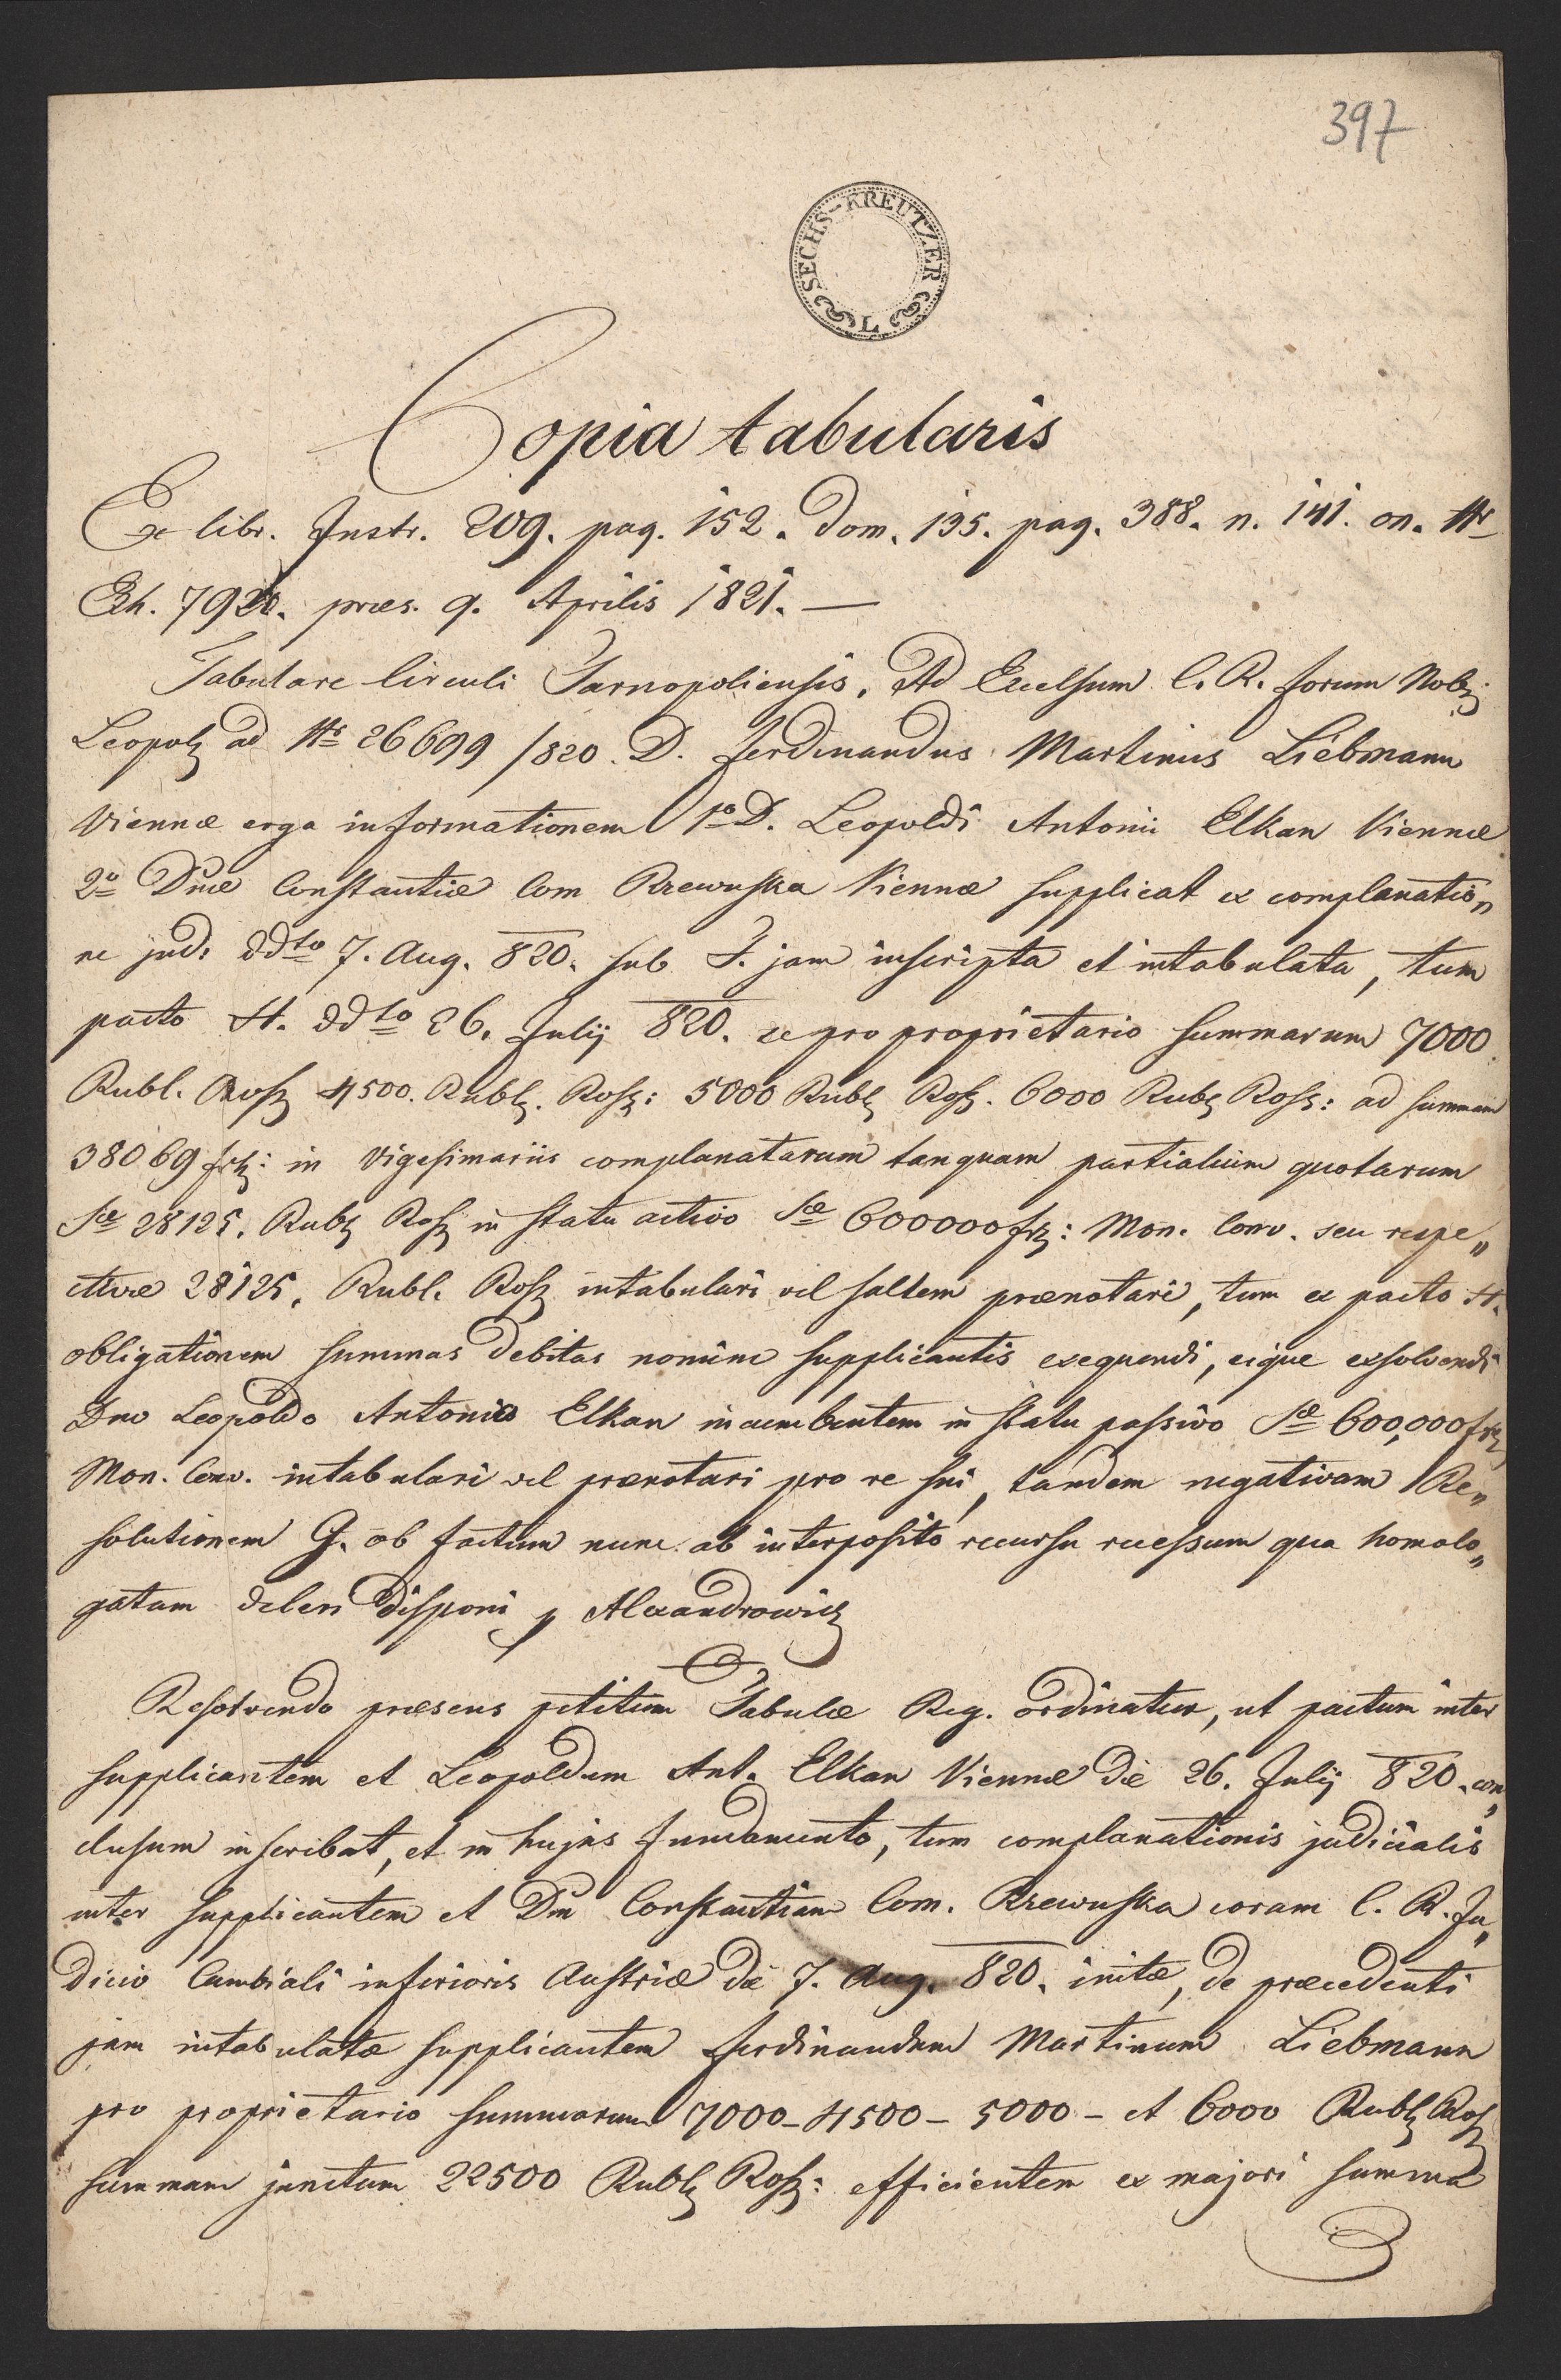 397
SECHS-KREUTZER L
Copia tabularis
Ex libr. Instr. 209. pag. 152. Dom. 135. pag. 388. n. 141. on. Nr
Exh. 7920. præs. 9. Aprilis 1821. —
Tabulare Circuli Tarnopoliensis. Ad Excelsum C. R. forum Nob:
Leopol ad Nr 26699/820. D. Ferdinandus Martinus Liebmann
Viennæ erga informationem 1o D. Leopoldi Antonii Elkan Viennæ
2o Dnæ Constantiæ Com Rzewuska Viennæ supplicat ex complanatio„
ne jud: ddto 7. Aug. 820. sub F. jam inscripta et intabulata, tum
pacto H. ddto 26. Julij 820. se pro proprietario summarum 7000
Rubl. Ross 4500. Rubl. Ross: 5000 Rubl Ross. 6000 Rubl Ross: ad summam
38069 fr: in vigesimariis complanatarum tanquam partialium quotarum
Sæ 28125. Rubl Ross in statu activo Sæ 600000 fr: Mon. Conv. seu respe„
ctive 28125. Rubl. Ross intabulari vel saltem prænotari, tum ex pacto H.
obligationem summas debitas nomine supplicantis exequendi, eique exsolvendi
Dno Leopoldo Antonio Elkan incumbentem in statu passivo Sæ 600,000 fr
Mon. Conv. intabulari vel prænotari pro re sui, tandem negativam Re„
solutionem G. ob factum nunc ab interposito recursu recessum qua homolo„
gatam deleri disponi Alexandrowicz
Resolvendo præsens petitum Tabulæ Reg. ordinatur, ut pactum inter
supplicantem et Leopoldum Ant. Elkan Viennæ die 26. Julij 820. con„
clusum inscribat, et in hujus fundamento, tum complanationis judicialis
inter supplicantem et Dm Constantiam Com. Rzewuska coram C. R. Ju„
dicio Cambiali inferioris Austriæ de 7. Aug. 820. initæ, de præcedenti
jam intabulatæ supplicantem Ferdinandum Martinum Liebmann
pro proprietario summarum 7000 – 4500 – 5000 – et 6000 Rubl Ross
summam junctim 22500 Rubl Ross: efficientem ex majori summa